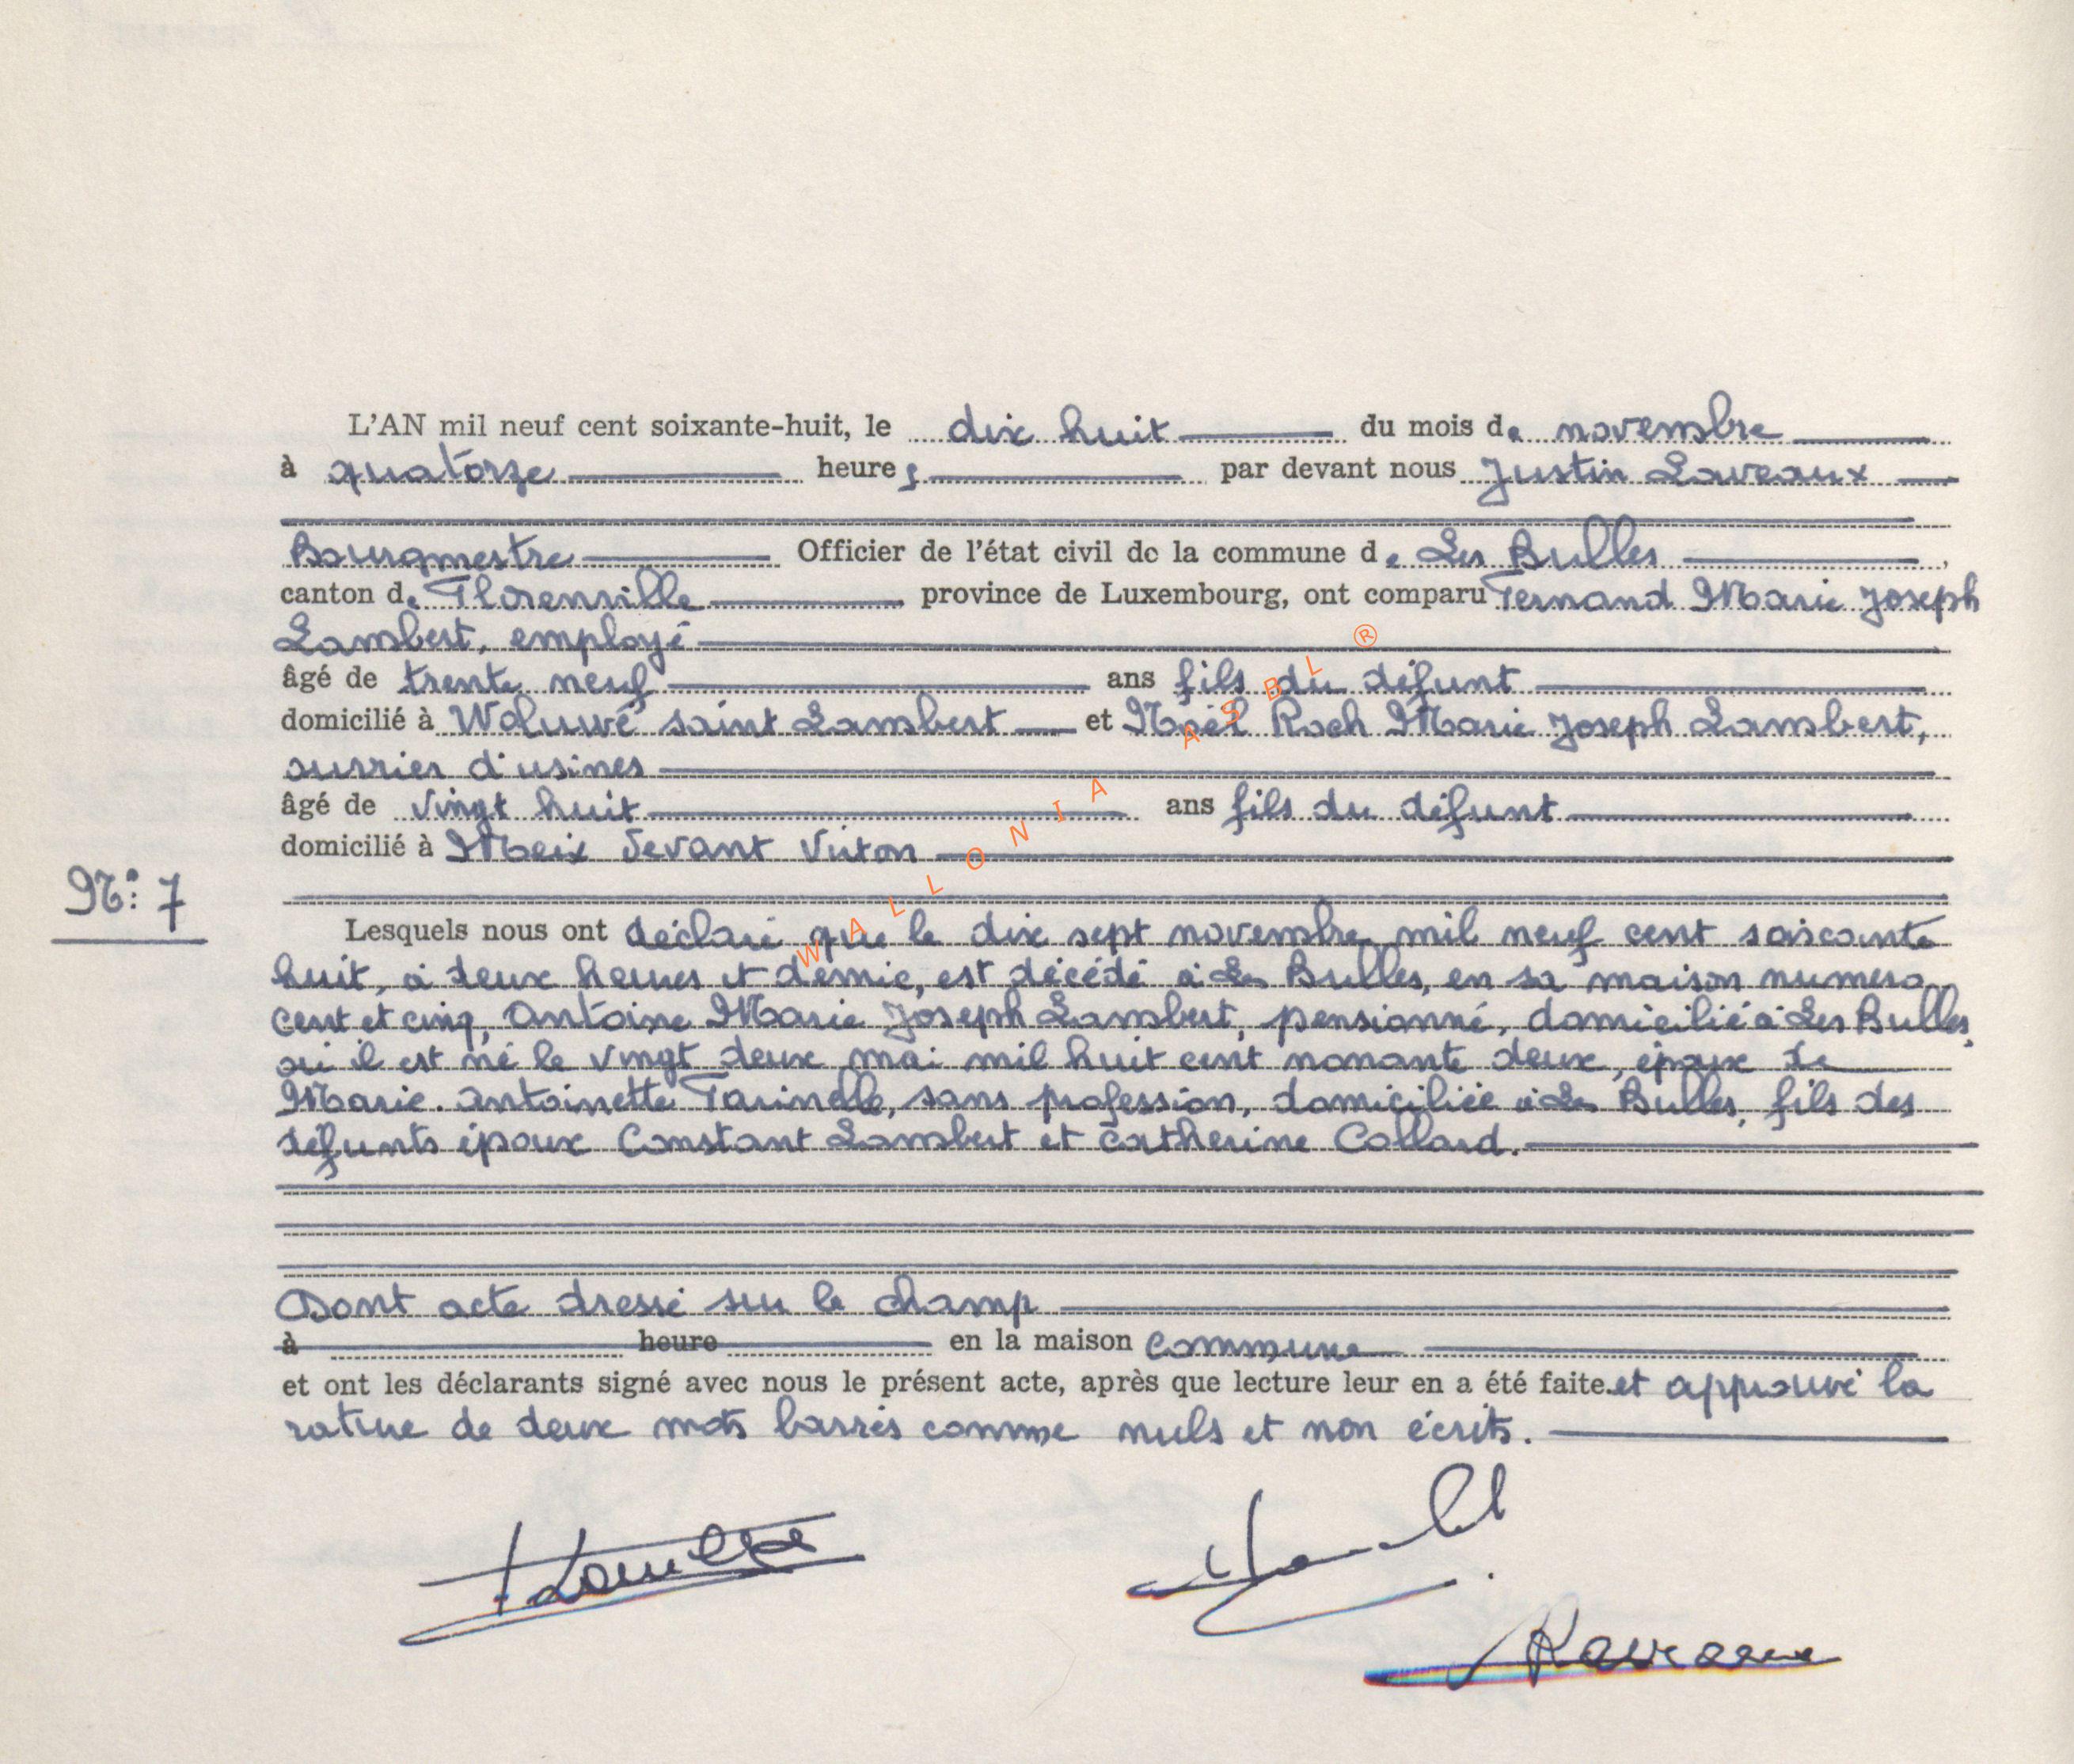 L'AN mil neuf cent soixante-huit, le dix huit du mois de novembre
à quatorze heures par devant nous Justin Laveaux
Bourgmestre Officier de l'état civil de la commune de Les Bulles,
canton de Florenville province de Luxembourg, ont comparu Fernand Marie Joseph
Lambert, employé
âgé de trente neuf ans fils du défunt
domicilié à Woluwé saint Lambert et Noël Roch Marie Joseph Lambert,
ouvrier d'usines
âgé de vingt huit ans fils du défunt
domicilié à Meix devant Virton
N°: 7
Lesquels nous ont déclaré que le dix sept novembre mil neuf cent soixante
huit, à deux heures et demie, est décédé à Les Bulles, en sa maison numero
cent et cinq, Antoine Marie Joseph Lambert, pensionné, domicilié à Les Bulles,
où il est né le vingt deux mai mil huit cent nonante deux, époux de
Marie-Antoinette Tarinelle, sans profession, domiciliée à Les Bulles, fils des
défunts époux Constant Lambert et Catherine Collard.
Dont acte dressé sur le champ
à heure en la maison commune
et ont les déclarants signé avec nous le présent acte, après que lecture leur en a été faite et approuvé la
rature de deux mots barrés comme nuls et non écrits.
WALLONIA ASBL ®